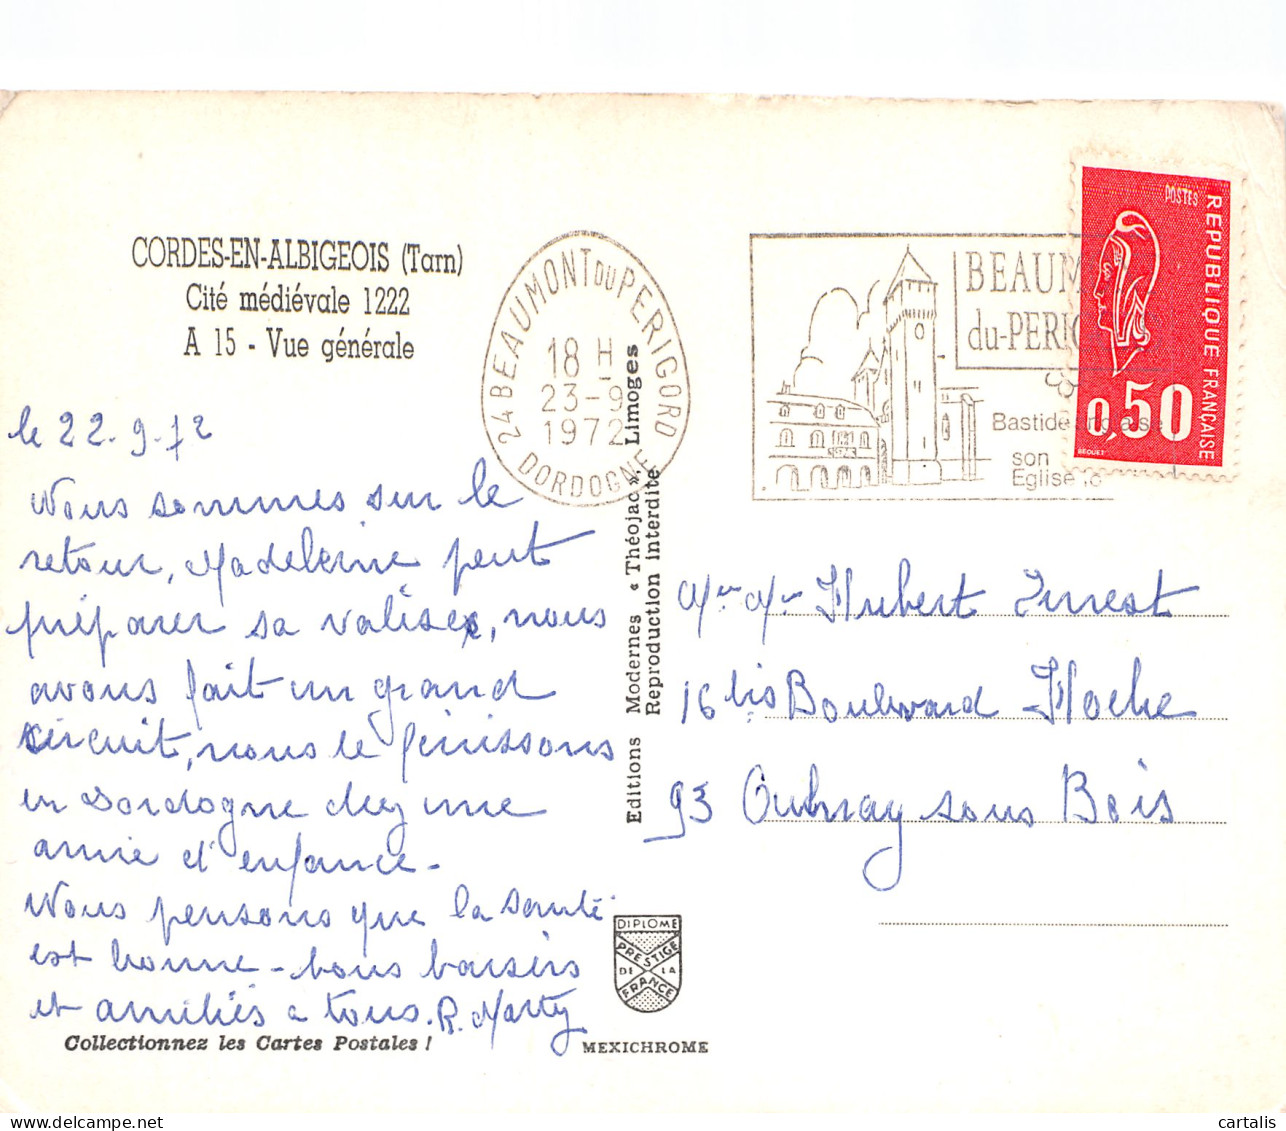 CORDES-EN-ALBIGEOIS (Tarn)
Cité médiévale 1222
A 15 - Vue générale
le 22-9-72
Nous sommes sur le
retour, Madeleine peut
préparer sa valise, nous
avons fait un grand
circuit, nous le finissons
en Dordogne chez une
amie d'enfance -
Nous pensons que la santé
est bonne - bons baisers
et amitiés a tous. R. Marty
Collectionnez les Cartes Postales !
24 BEAUMONT DU PERIGORD
18 H
23-9
1972
DORDOGNE
Editions Modernes « Théojac », Limoges
Reproduction interdite
BEAUM
du-PERIG
Bastide
son
Eglise
POSTES
REPUBLIQUE FRANÇAISE
0,50
BEQUET
Mr Mr Hubert Ernest
16 bis Boulevard Hoche
93 Aulnay sous Bois
DIPLOME
PRESTIGE
DE LA
FRANCE
MEXICHROME
cartalis